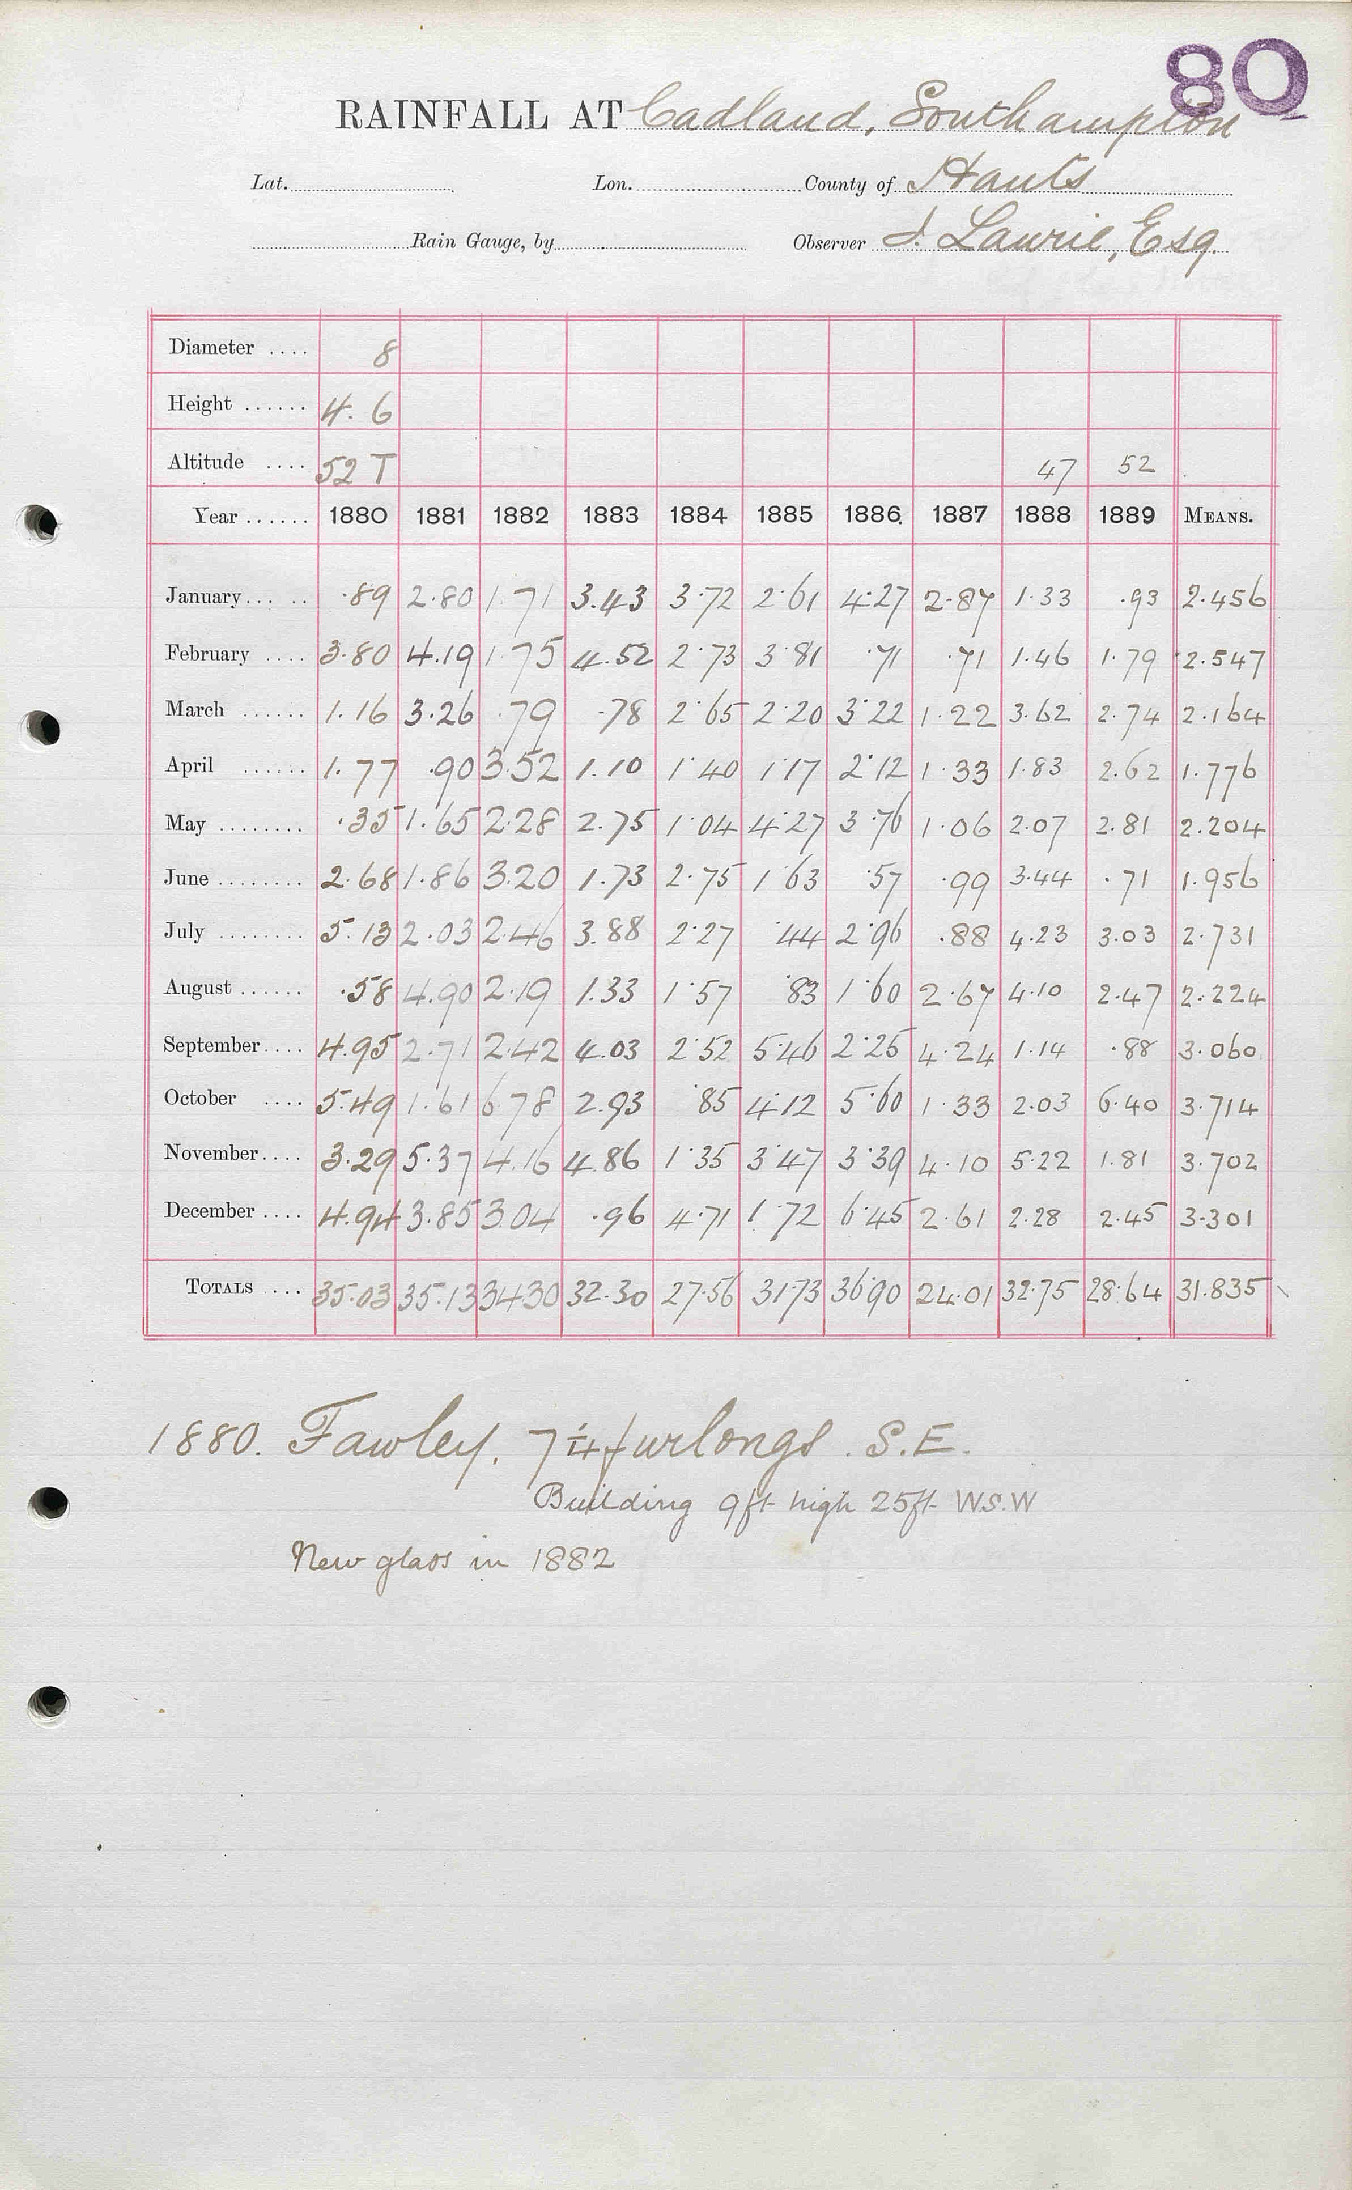 80
RAINFALL AT Cadland, Southampton
Lat. Lon. County of Hants
Rain Gauge, by Observer J. Lawrie, Esq.
Diameter .... 8
Height ...... 4. 6
Altitude .... 52 T 47 52
Year ...... 1880 1881 1882 1883 1884 1885 1886. 1887 1888 1889 MEANS.
January ..... .89 2.80 1.71 3.43 3.72 2.61 4.27 2.87 1.33 .93 2.456
February .... 3.80 4.19 1.75 4.52 2.73 3.81 .71 .71 1.46 1.79 2.547
March ...... 1.16 3.26 .79 .78 2.65 2.20 3.22 1.22 3.62 2.74 2.164
April ...... 1.77 .90 3.52 1.10 1.40 1.17 2.12 1.33 1.83 2.62 1.776
May ........ .35 1.65 2.28 2.75 1.04 4.27 3.76 1.06 2.07 2.81 2.204
June ........ 2.68 1.86 3.20 1.73 2.75 1.63 .57 .99 3.44 .71 1.956
July ........ 5.13 2.03 2.46 3.88 2.27 .44 2.96 .88 4.23 3.03 2.731
August ...... .58 4.90 2.19 1.33 1.57 .83 1.60 2.67 4.10 2.47 2.224
September .... 4.95 2.71 2.42 4.03 2.52 5.46 2.25 4.24 1.14 .88 3.060
October .... 5.49 1.61 6.78 2.93 .85 4.12 5.60 1.33 2.03 6.40 3.714
November .... 3.29 5.37 4.16 4.86 1.35 3.47 3.39 4.10 5.22 1.81 3.702
December .... 4.94 3.85 3.04 .96 4.71 1.72 6.45 2.61 2.28 2.45 3.301
TOTALS .... 35.03 35.13 34.30 32.30 27.56 31.73 36.90 24.01 32.75 28.64 31.835
1880. Fawley. 7¼ furlongs. S.E.
Building 9ft high 25ft W.S.W
New glass in 1882